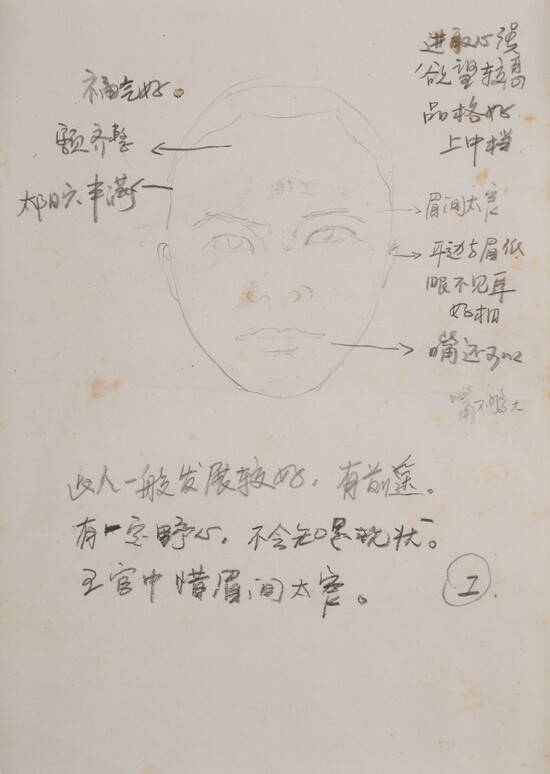 福气好。
额齐整
太阳穴丰满
进取心强
欲望较高
品格好
上中档
眉间太窄
耳边与眉低
眼不见耳
好相
嘴还可以
嘴不够大
此人一般发展较好，有前途。
有一定野心，不会知足现状。
五官中惜眉间太窄。
工